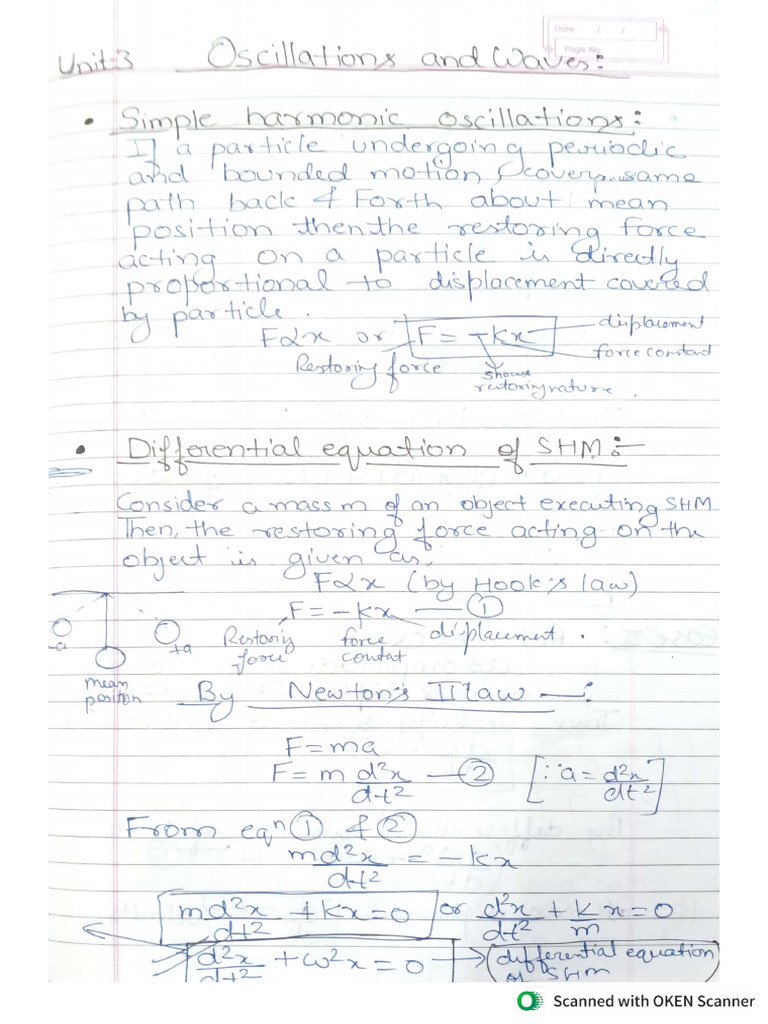 Date / /
Page No.
Unit-3 Oscillations and Waves:
• Simple harmonic oscillations:
If a particle undergoing periodic
and bounded motion, covers same
path back & Forth about mean
position then the restoring force
acting on a particle is directly
proportional to displacement covered
by particle.
F∝x or F = -kx displacement
force constant
Restoring force shows
restoring nature.
• Differential equation of SHM:-
Consider a mass m of an object executing SHM
Then, the restoring force acting on the
object is given as,
F∝x (by Hook's law)
F = -kx — ①
-a +a Restoring force force contat displacement.
mean
position
By Newton's II law —:
F = ma
F = m d²x/dt² — ② [∵ a = d²x/dt²]
From eqⁿ ① & ②
md²x/dt² = -kx
md²x/dt² + kx = 0 or d²x/dt² + k/m x = 0
d²x/dt² + ω²x = 0 → differential equation
of SHM
Scanned with OKEN Scanner